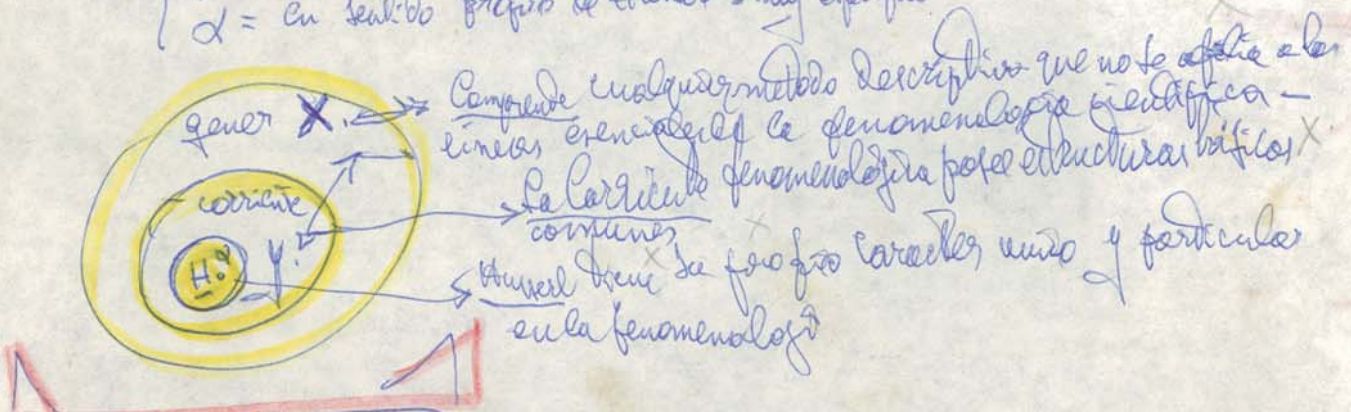 α = en sentido
gener X. Comprende cualquier método descriptivo que no se afilia a las
líneas esenciales de la fenomenología científica —
corriente La Corriente fenomenológica posee estructuras básicas
comunes
H. y. Husserl tiene su propio caracter unico y particular
en la fenomenologí